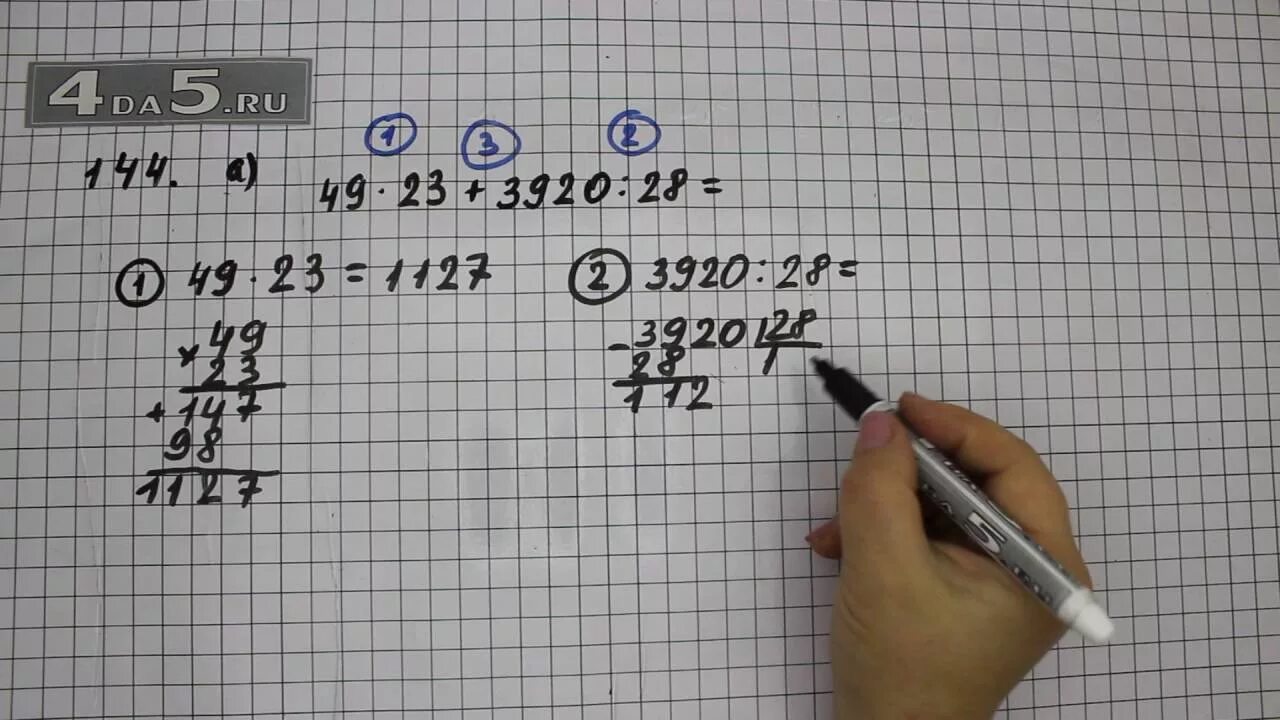 4DA5.RU
1 3 2
144. а) 49 · 23 + 3920 : 28 =
1 49 · 23 = 1127
× 49
23
+ 147
98
1127
2 3920 : 28 =
- 3920 28
28 1
112